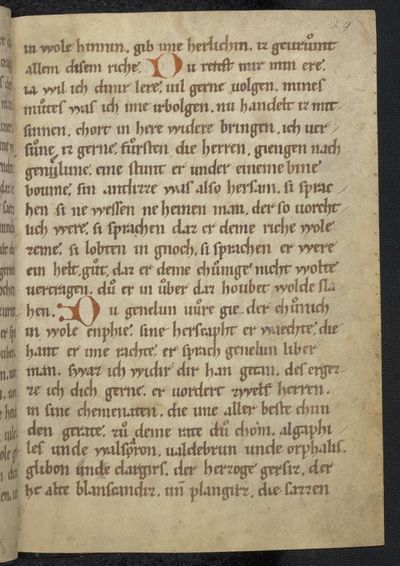 29
in wole hinnin. gib ime herlichin. iz geurůmt
allem disem riche. Du retest mir min ere.
ia wil ich dinir lere. uil gerne uolgen. mines
můtes was ich ime irbolgen. nu handelt iz mit
sinnen. chort in here widere bringen. ich uer
sůne iz gerne. fůrsten die herren. giengen nach
genůlune. eine stunt er under eineme bine
boume. sin antluzze was also hersam. si sprac
hen si ne wessen neheinen man. der so uorcht
lich were. si sprachen daz er deme riche wole
zeme. si lobten in gnoch. si sprachen er were
ein helt gůt. daz er deme chůnige nicht wolte
uertragen. dů er in uber daz houbet wolde sla
hen. Du genelun uůre gie. der chůnich
in wole enphie. sine herscapht er waechte. die
hant er ime rachte. er sprach genelun liber
man. swaz ich widir dir han getan. des erger
ze ich dich gerne. er uordert zwelf herren.
in sine chemenaten. die ime aller beste chun
den gerate. zů deme rate dů chom. algaphi
les unde walsproron. ualdebrun unde orphalis.
glibon unde dargirs. der herzoge gersiz. der
ht alte blanscandiz. uñ plangirz. die sazzen